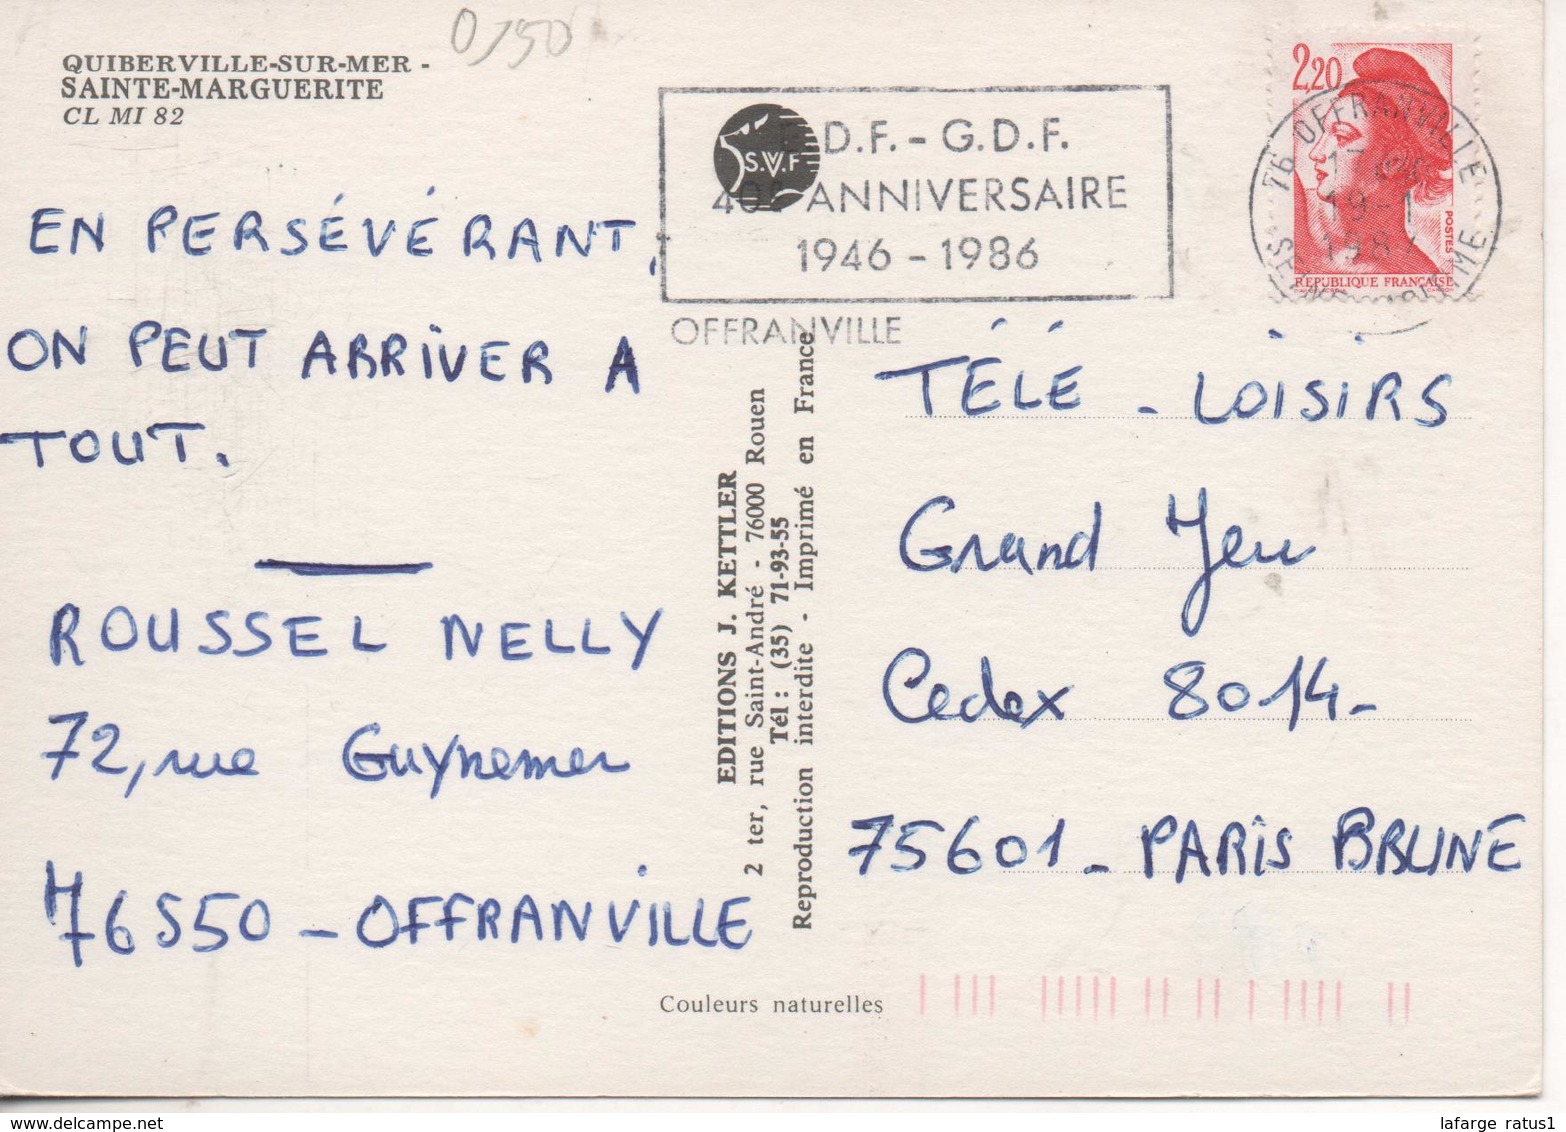 QUIBERVILLE-SUR-MER -
SAINTE-MARGUERITE
CL MI 82
0,50
EN PERSÉVÉRANT,
ON PEUT ARRIVER A
TOUT.
ROUSSEL NELLY
72, rue Guynemer
76550 - OFFRANVILLE
S.V.F
D.F. - G.D.F.
40e ANNIVERSAIRE
1946 - 1986
OFFRANVILLE
2,20
POSTES
REPUBLIQUE FRANÇAISE
76 OFFRANVILLE
19-1
EDITIONS J. KETTLER
2 ter, rue Saint-André - 76000 Rouen
Tél : (35) 71-93-55
Reproduction interdite - Imprimé en France
TÉLÉ - LOISIRS
Grand Jeu
Cedex 8014 -
75601 - PARIS BRUNE
Couleurs naturelles
lafarge ratus1